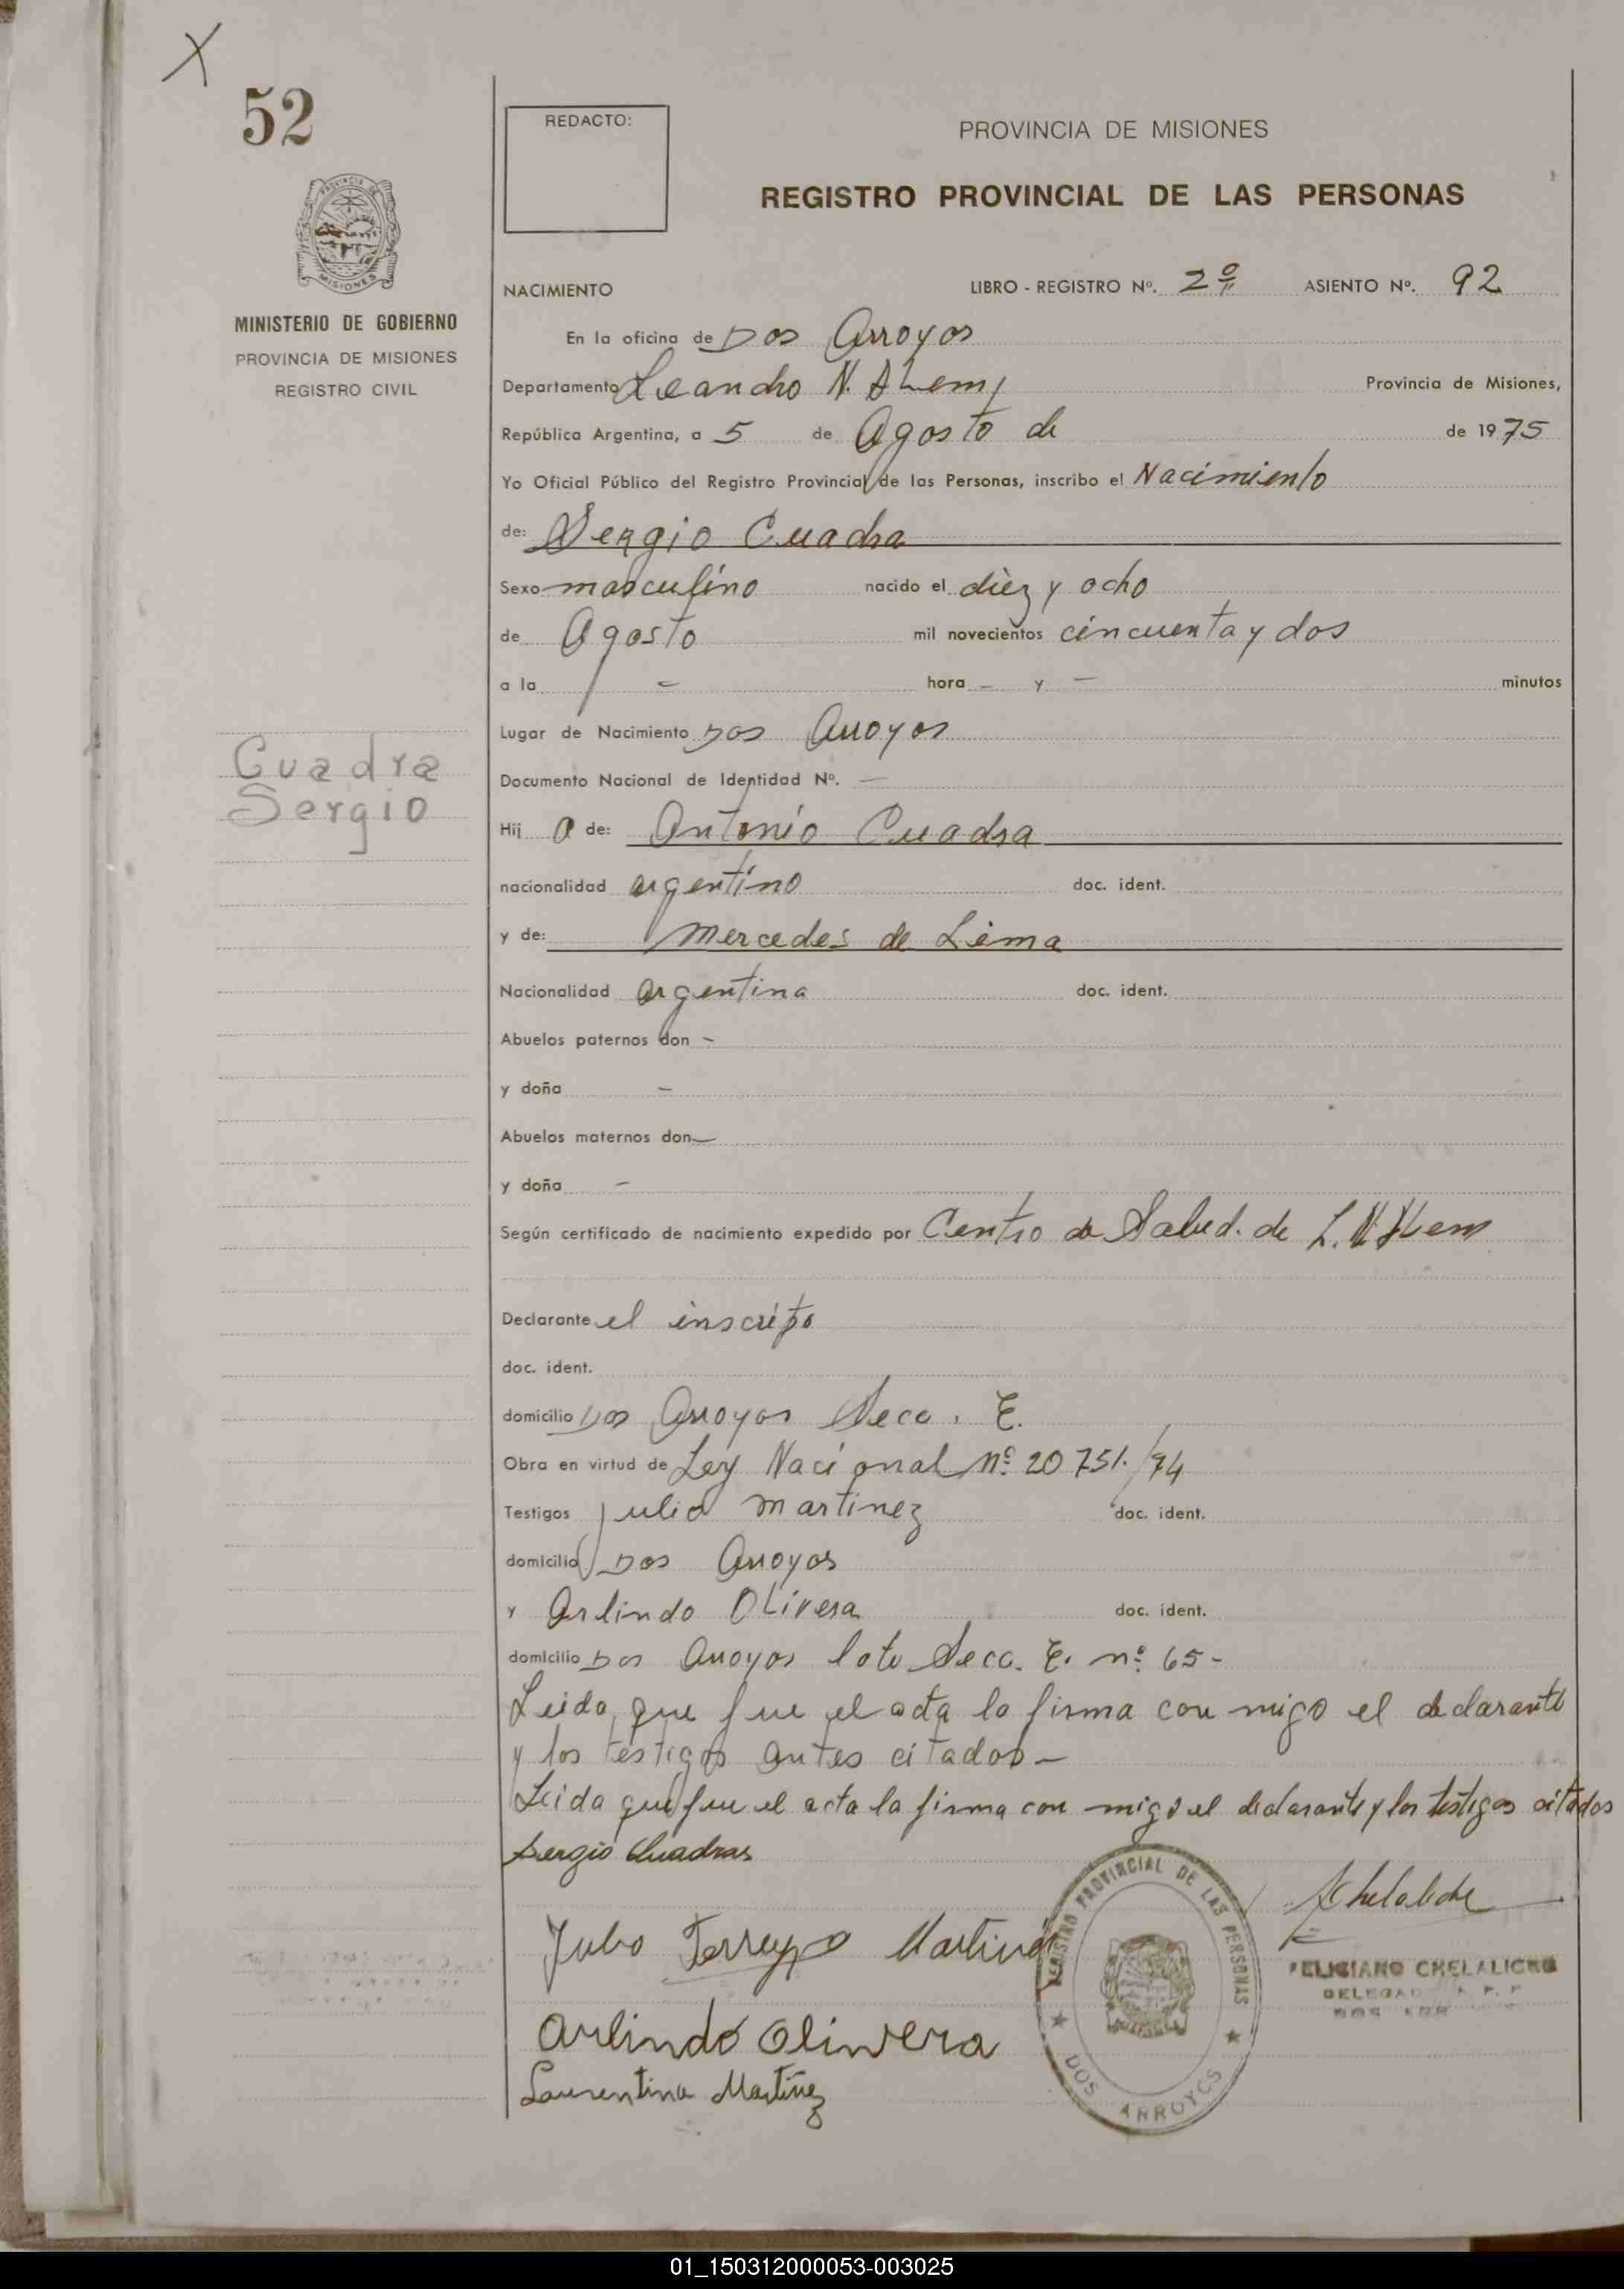 X
52
REDACTO:
PROVINCIA DE MISIONES
REGISTRO PROVINCIAL DE LAS PERSONAS
PROVINCIA DE
MISIONES
MINISTERIO DE GOBIERNO
PROVINCIA DE MISIONES
REGISTRO CIVIL
NACIMIENTO LIBRO - REGISTRO Nº. 2º ASIENTO Nº. 92
En la oficina de Dos Arroyos
Departamento Leandro N. ALem, Provincia de Misiones,
República Argentina, a 5 de Agosto de de 1975
Yo Oficial Público del Registro Provincial de las Personas, inscribo el Nacimiento
de: Sergio Cuadra
Sexo masculino nacido el diez y ocho
de Agosto mil novecientos cincuenta y dos
a la - hora - y - minutos
Lugar de Nacimiento Dos Arroyos
Cuadra
Sergio
Documento Nacional de Identidad Nº. —
Hij o de: Antonio Cuadra
nacionalidad argentino doc. ident.
y de: Mercedes de Lima
Nacionalidad argentina doc. ident.
Abuelos paternos don -
y doña -
Abuelos maternos don —
y doña -
Según certificado de nacimiento expedido por Centro de Salud. de L. N. ALem
Declarante el inscripto
doc. ident.
domicilio Dos Arroyos Secc. E.
Obra en virtud de Ley Nacional Nº 20751./74
Testigos Julio Martinez doc. ident.
domicilio Dos Arroyos
y Arlindo Olivera doc. ident.
domicilio Dos Arroyos lote Secc. E. nº 65-
Leida que fue el acta la firma con migo el declarante
y los testigos antes citados —
Leida que fue el acta la firma con migo el declarante y los testigos citados
Sergio Cuadras
Julio Ferreyro Martinez
Arlindo Olinvera
Laurentina Martinez
REGISTRO PROVINCIAL DE LAS PERSONAS
DOS ARROYOS
FChelaliche
FELICIANO CHELALICHE
DOS ARR
01_150312000053-003025